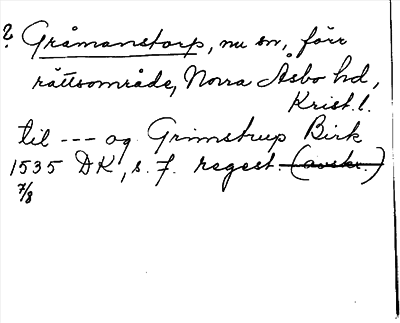 ? Gråmanstorp, nu sn, förr
rättsområde, Norra Åsbo hd,
Krist. l.
til --- og Grimstrup Birk
1535 DK, s. 7. regest. (avskr.)
7/8